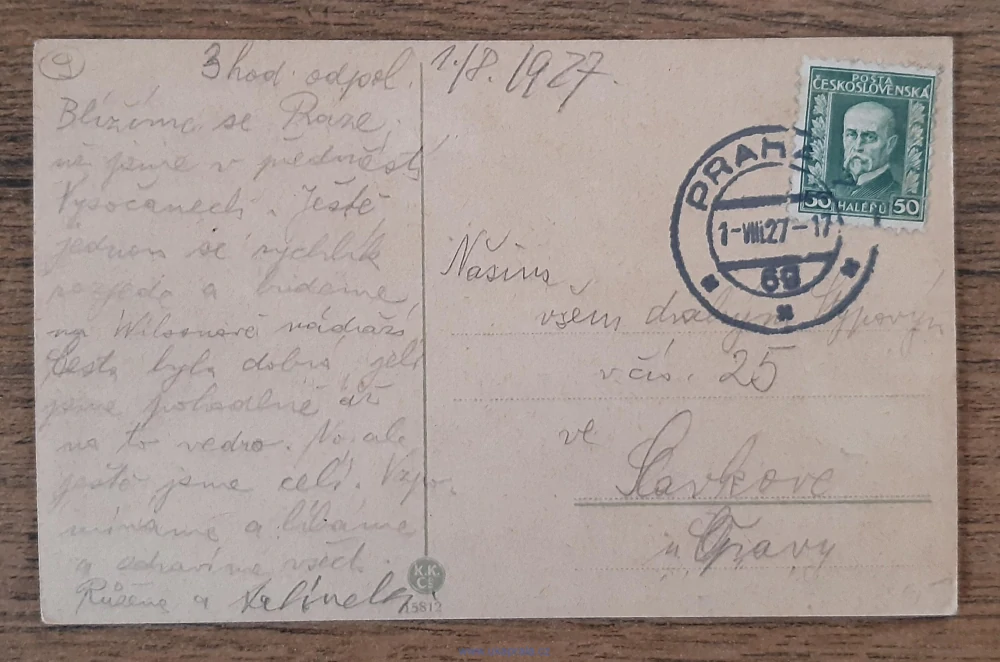 9
3 hod. odpol. 1./8. 1927.
Blížíme se Praze,
už jsme v předměstí
Vysočanech. Ještě
jednou se rychlík
a budeme
na Wilsonově nádraží
Cesta byla dobrá, jeli
jsme pohodlně až
na to vedro. No ale
ještě jsme celí. Vzpo-
mínáme a líbáme
a zdravíme všech.
Růžena a
POSTA
ČESKOSLOVENSKÁ
50 HALÉŘŮ 50
PRAHA
1-VIII.27-17
69
Našim
všem drahým
v čís. 25
ve
Slavkově
u Opavy
K.K.
15812